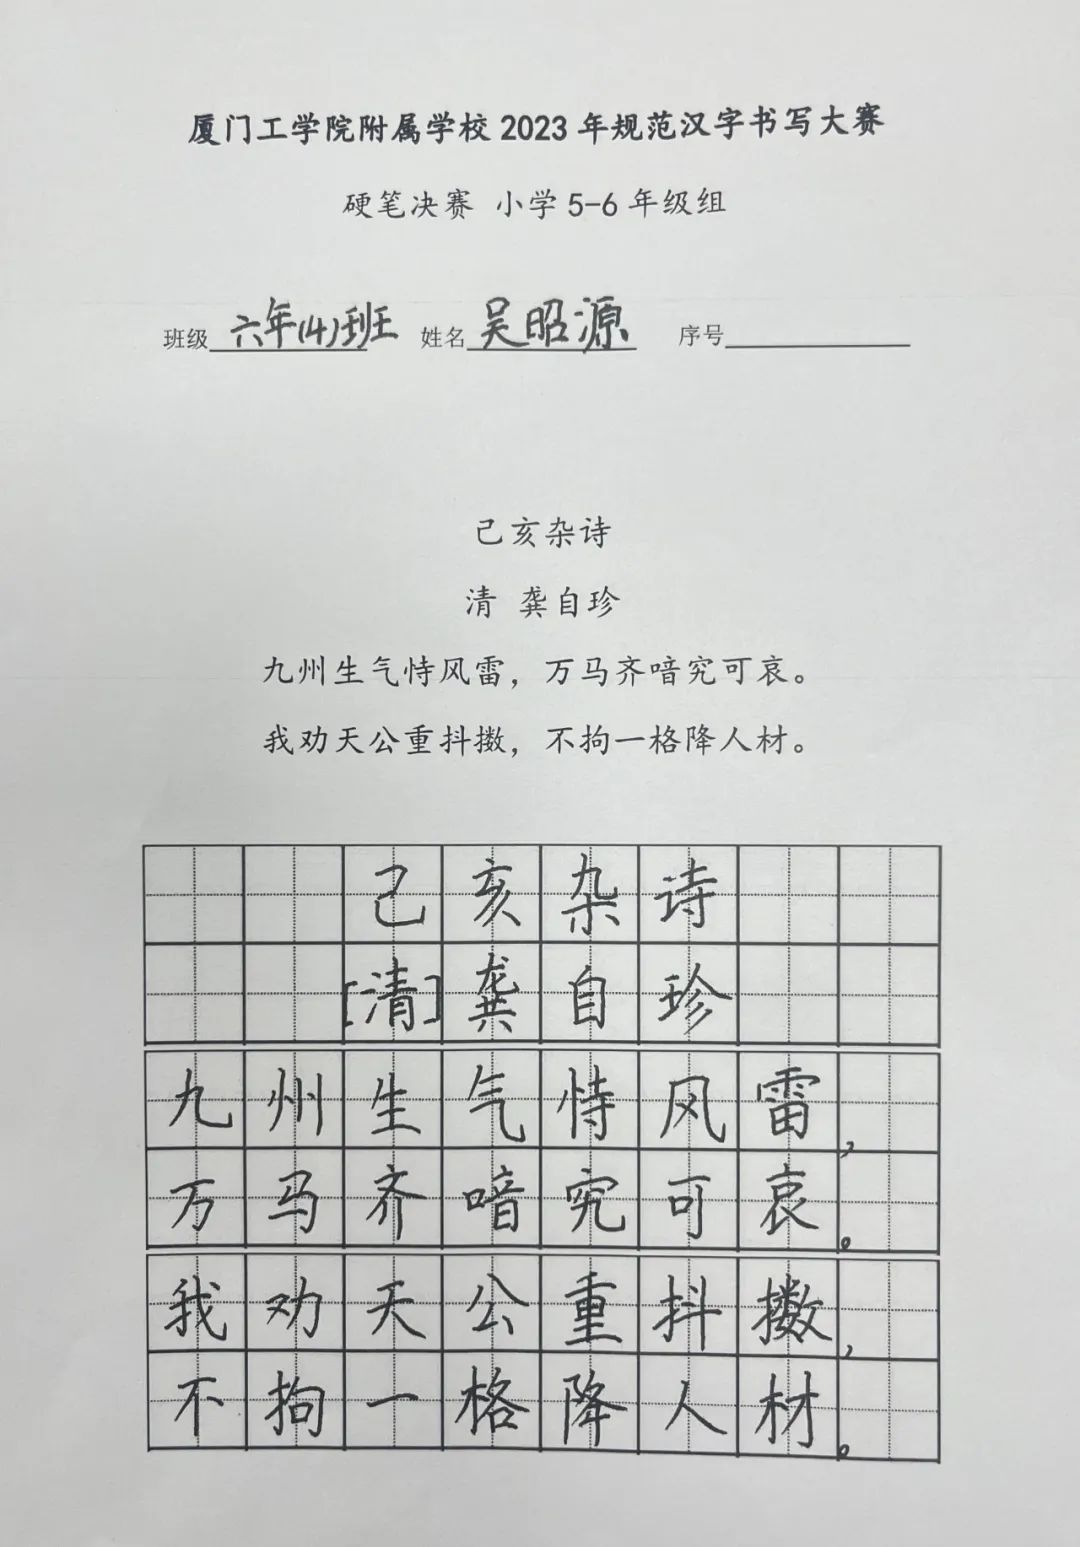 厦门工学院附属学校2023年规范汉字书写大赛
硬笔决赛 小学5-6年级组
班级 六年(4)班 姓名 吴昭源 序号
己亥杂诗
清 龚自珍
九州生气恃风雷，万马齐喑究可哀。
我劝天公重抖擞，不拘一格降人材。
己亥杂诗
[清]龚自珍
九州生气恃风雷，
万马齐喑究可哀。
我劝天公重抖擞，
不拘一格降人材。